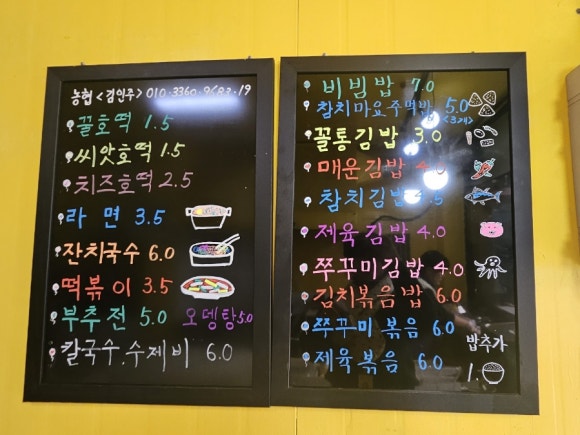 농협 <김인주> 010.3360.9682.19
꿀호떡 1.5
씨앗호떡 1.5
치즈호떡 2.5
라면 3.5
잔치국수 6.0
떡볶이 3.5
부추전 5.0 오뎅탕 5.0
칼국수.수제비 6.0
비빔밥 7.0
참치마요주먹밥 5.0
<3개>
꼴통김밥 3.0
매운김밥
참치김밥
제육김밥 4.0
쭈꾸미김밥 4.0
김치볶음밥 6.0
쭈꾸미볶음 6.0
제육볶음 6.0
밥추가
1.